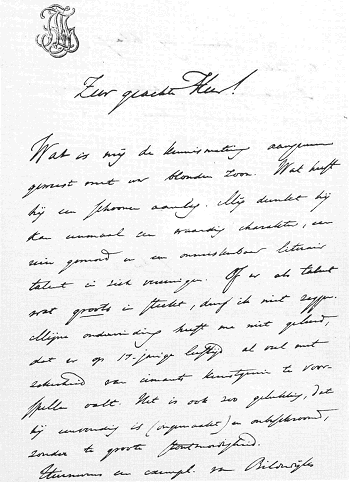 Zeer geachte Heer!
Wat is mij de kennismaking aangenaam
geweest met uw blonden zoon. Wat heeft
hij een schoone aanleg. Mij dunkt hij
kan eenmaal een waardig charakter, een
rein gemoed en een onmiskenbaar literair
talent in zich vereenigen. Of er als talent
wat groots in steekt, durf ik niet zeggen.
Mijne ondervinding heeft me niet geleerd,
dat er op 17-jarige leeftijd al veel met
zekerheid van iemands kunstgenie te voor-
spellen valt. Het is ook zoo gelukkig, dat
hij eenvoudig is (ongemaakt) en onbeschroomd,
zonder te groote
een exempl. van Bilderdijks